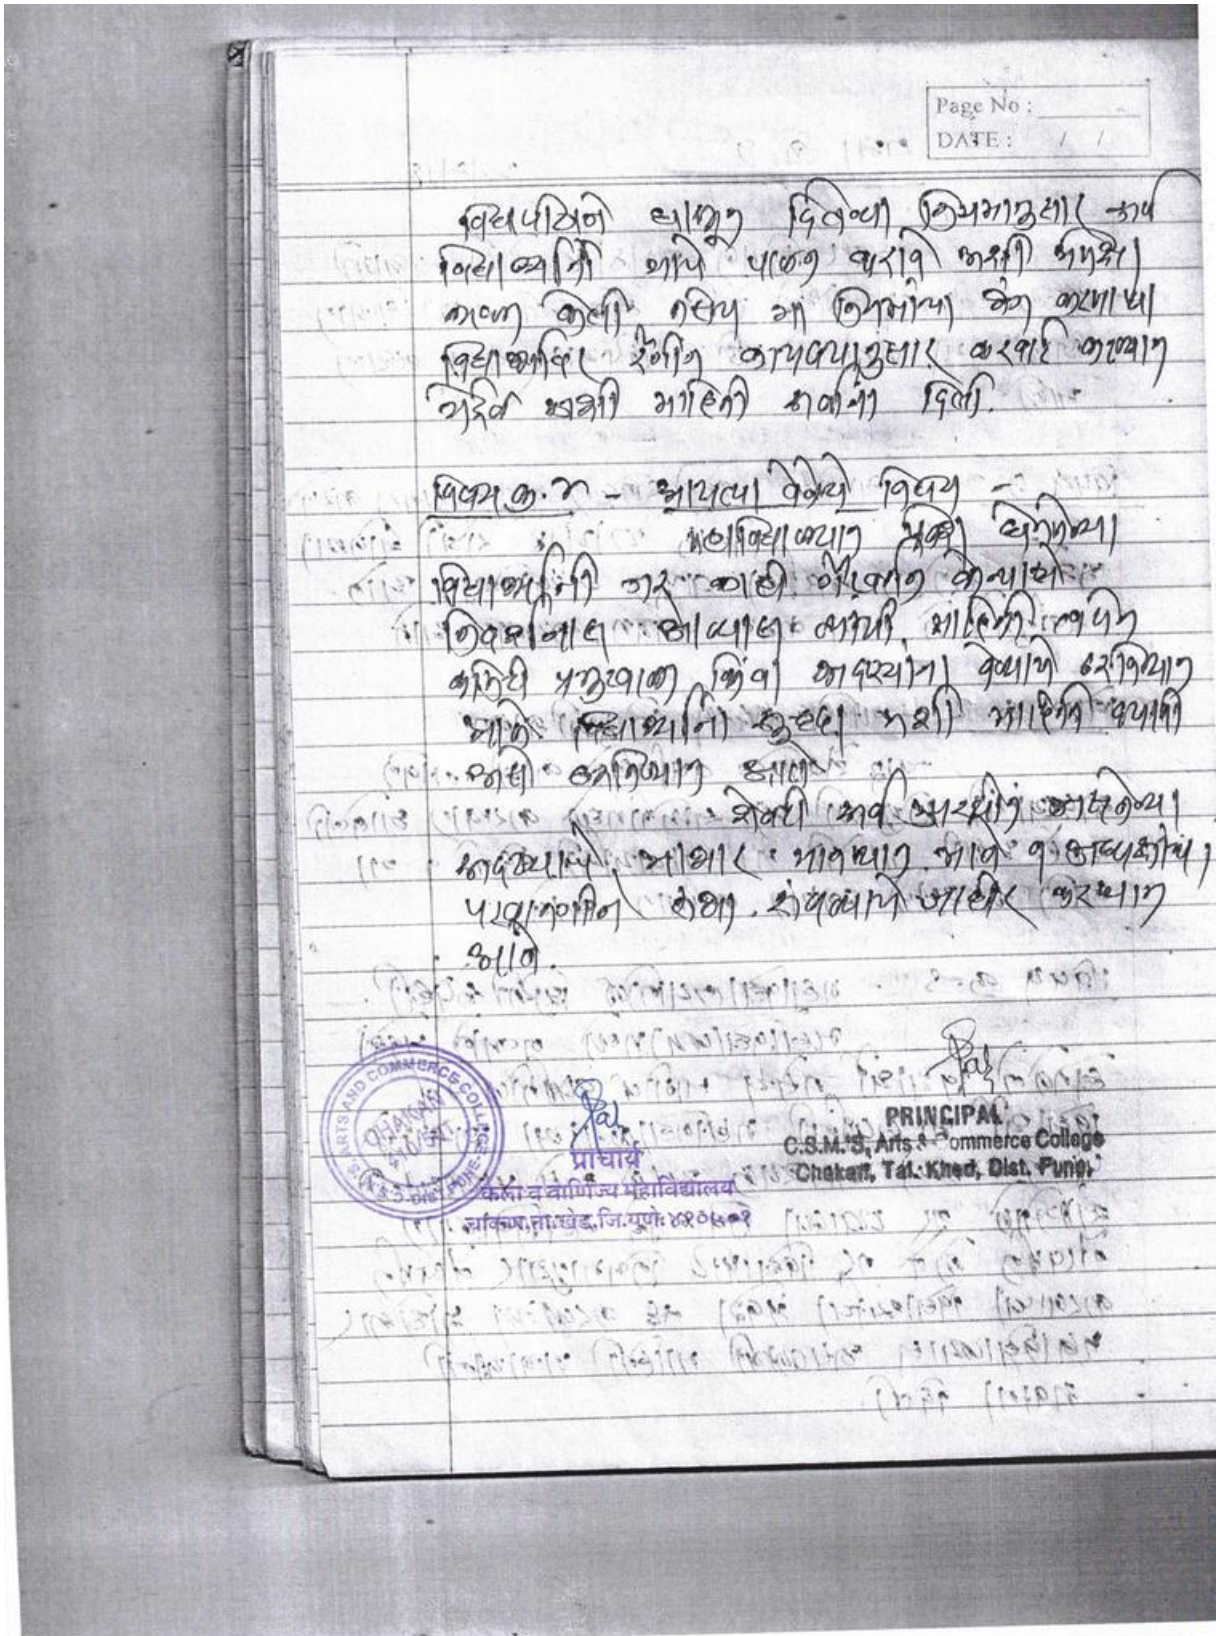 Page No :
DATE : / /
विद्यपीठाने घालून दिलेल्या नियमानुसार सर्व
विद्यार्थ्यांनी याचे पालन करावे अशी
केली तसेच या नियमांचा भंग करणाऱ्या
विद्यार्थ्यांवर रॅगींग कायद्यानुसार करवाई करण्यात
येईल अशी माहिती सर्वांना दिली.
विषय क्र. ४ - आयत्या वेळेचे विषय -
महाविद्यालयात प्रवेश घेतलेल्या
विद्यार्थ्यांनी जर काही गैरवर्तन केल्याचे
निदर्शनास आल्यास त्यांची माहिती त्वरीत
कमिटी प्रमुखाला किंवा सदस्यांना देण्याचे ठरविण्यात
आले विद्यार्थ्यांनी सुद्धा अशी माहिती द्यावी
असे ठरविण्यात आले
शेवटी सर्व उपस्थीत असलेल्या
सदस्यांचे आभार मानण्यात आले व अध्यक्षांच्या
परवानगीने सभा संपल्याचे जाहीर करण्यात
आले.
ARTS AND COMMERCE COLLEGE
CHAKAN
DIST. PUNE
प्राचार्य
कला व वाणिज्य महाविद्यालय
चाकण, ता. खेड, जि. पुणे. ४१०५०१
PRINCIPAL
C.S.M.'S, Arts & Commerce College
Chakan, Tal. Khed, Dist. Pune.